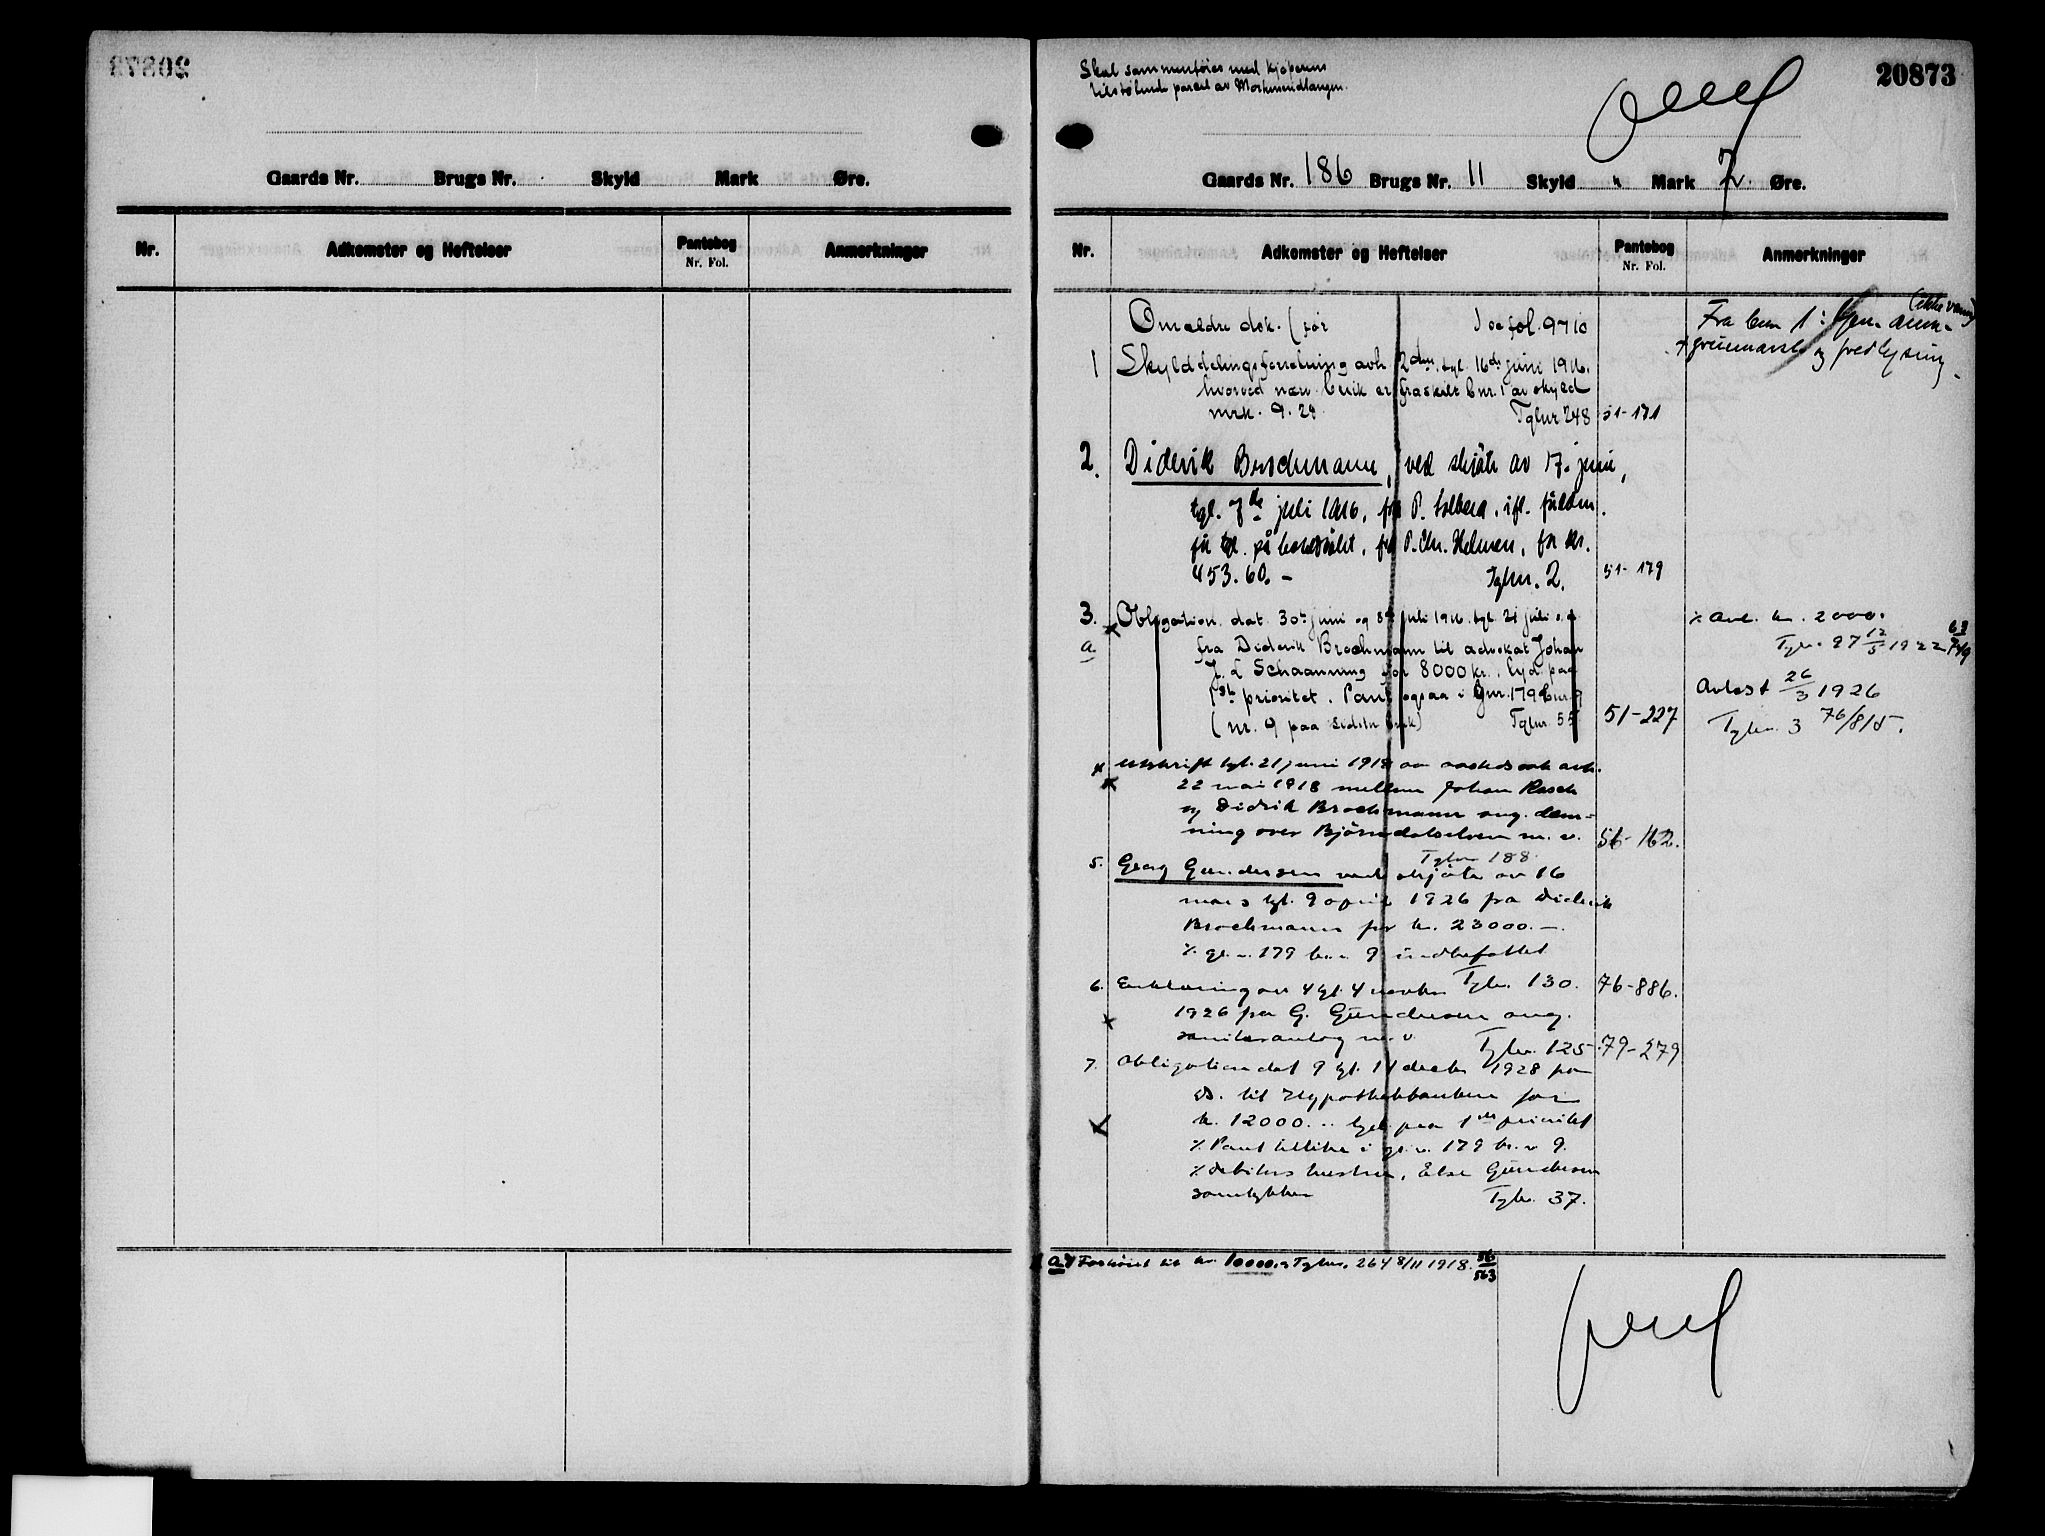 20873
Gaards Nr. Brugs Nr. Skyld Mark Øre.
Nr. Adkomster og Heftelser Pantebog Nr. Fol. Anmerkninger
Skal sammenføies med kjøperens
tilstøtende parcel av
20873
Gaards Nr. 186 Brugs Nr. 11 Skyld " Mark 7 Øre.
Nr. Adkomster og Heftelser Pantebog Nr. Fol. Anmerkninger
Om ældre dok. (før fol. 9710
Fra bnr 1: (ikke vann)
og fredlysning
1 Skylddelingsforretning avh. 2den tgl. 16de juni 1916.
hvorved nærv. bruk er fraskilt bnr. 1 av skyld
mrk. 9.29. Tgbnr 248 51-171
2. Diderik Brochmann, ved skjøte av 17. juni,
tgl. 7de juli 1916, fra P. Solberg, ifl. fuldm.
før tgl. på hovedbølet, fra P. Chr. Helmen, for kr.
453.60.- Tgbnr. 2. 51-179
3. Obligation dat. 30te juni og 8de juli 1916 tgl. 21 juli s. a.
a. fra Diderik Brochmann til advokat Johan
J. L Schaanning for 8000 kr., lyd. paa
1ste prioritet. Pant ogsaa i Gnr. 179 bnr. 9
(nr. 9 paa sidste bruk) Tgbnr. 55 51-227
% avl. kr. 2000.
Tgbnr. 97 12/5 1922 63/749
Avløst 26/3 1926
Tgbnr. 3 76/815.
4 utskrift tgl. 21 juni 1918 av aastedssak avh.
22 mai 1918 mellem Johan Rasch
og Didrik Brochmann ang. dæm-
ning over Bjørndalselven m. v. 56-162.
Tgbnr 188
5. Georg Gundersen ved skjøte av 16
mars tgl. 9 april 1926 fra Diderik
Brochmann for kr. 23000.-.
% gr. nr. 179 br. nr 9 indbefattet
Tgbnr. 130. 76-886.
6. Erklæring av 4 tgl. 4 novbr
1926 fra G. Gundersen ang.
m. v. Tgbnr. 125 79-279
7. Obligation dat 9 tgl. 11 decbr 1928 fra
ds. til Hypothekbanken for
kr. 12000.- lyd. paa 1ste prioritet
% Pant tillike i gr. nr. 179 br. nr 9.
% debitors hustru, Else Gundersen
samtykker Tgbnr. 37.
a) Forhøiet til kr. 10000,- Tgbnr. 264 8/11 1918. 56/563